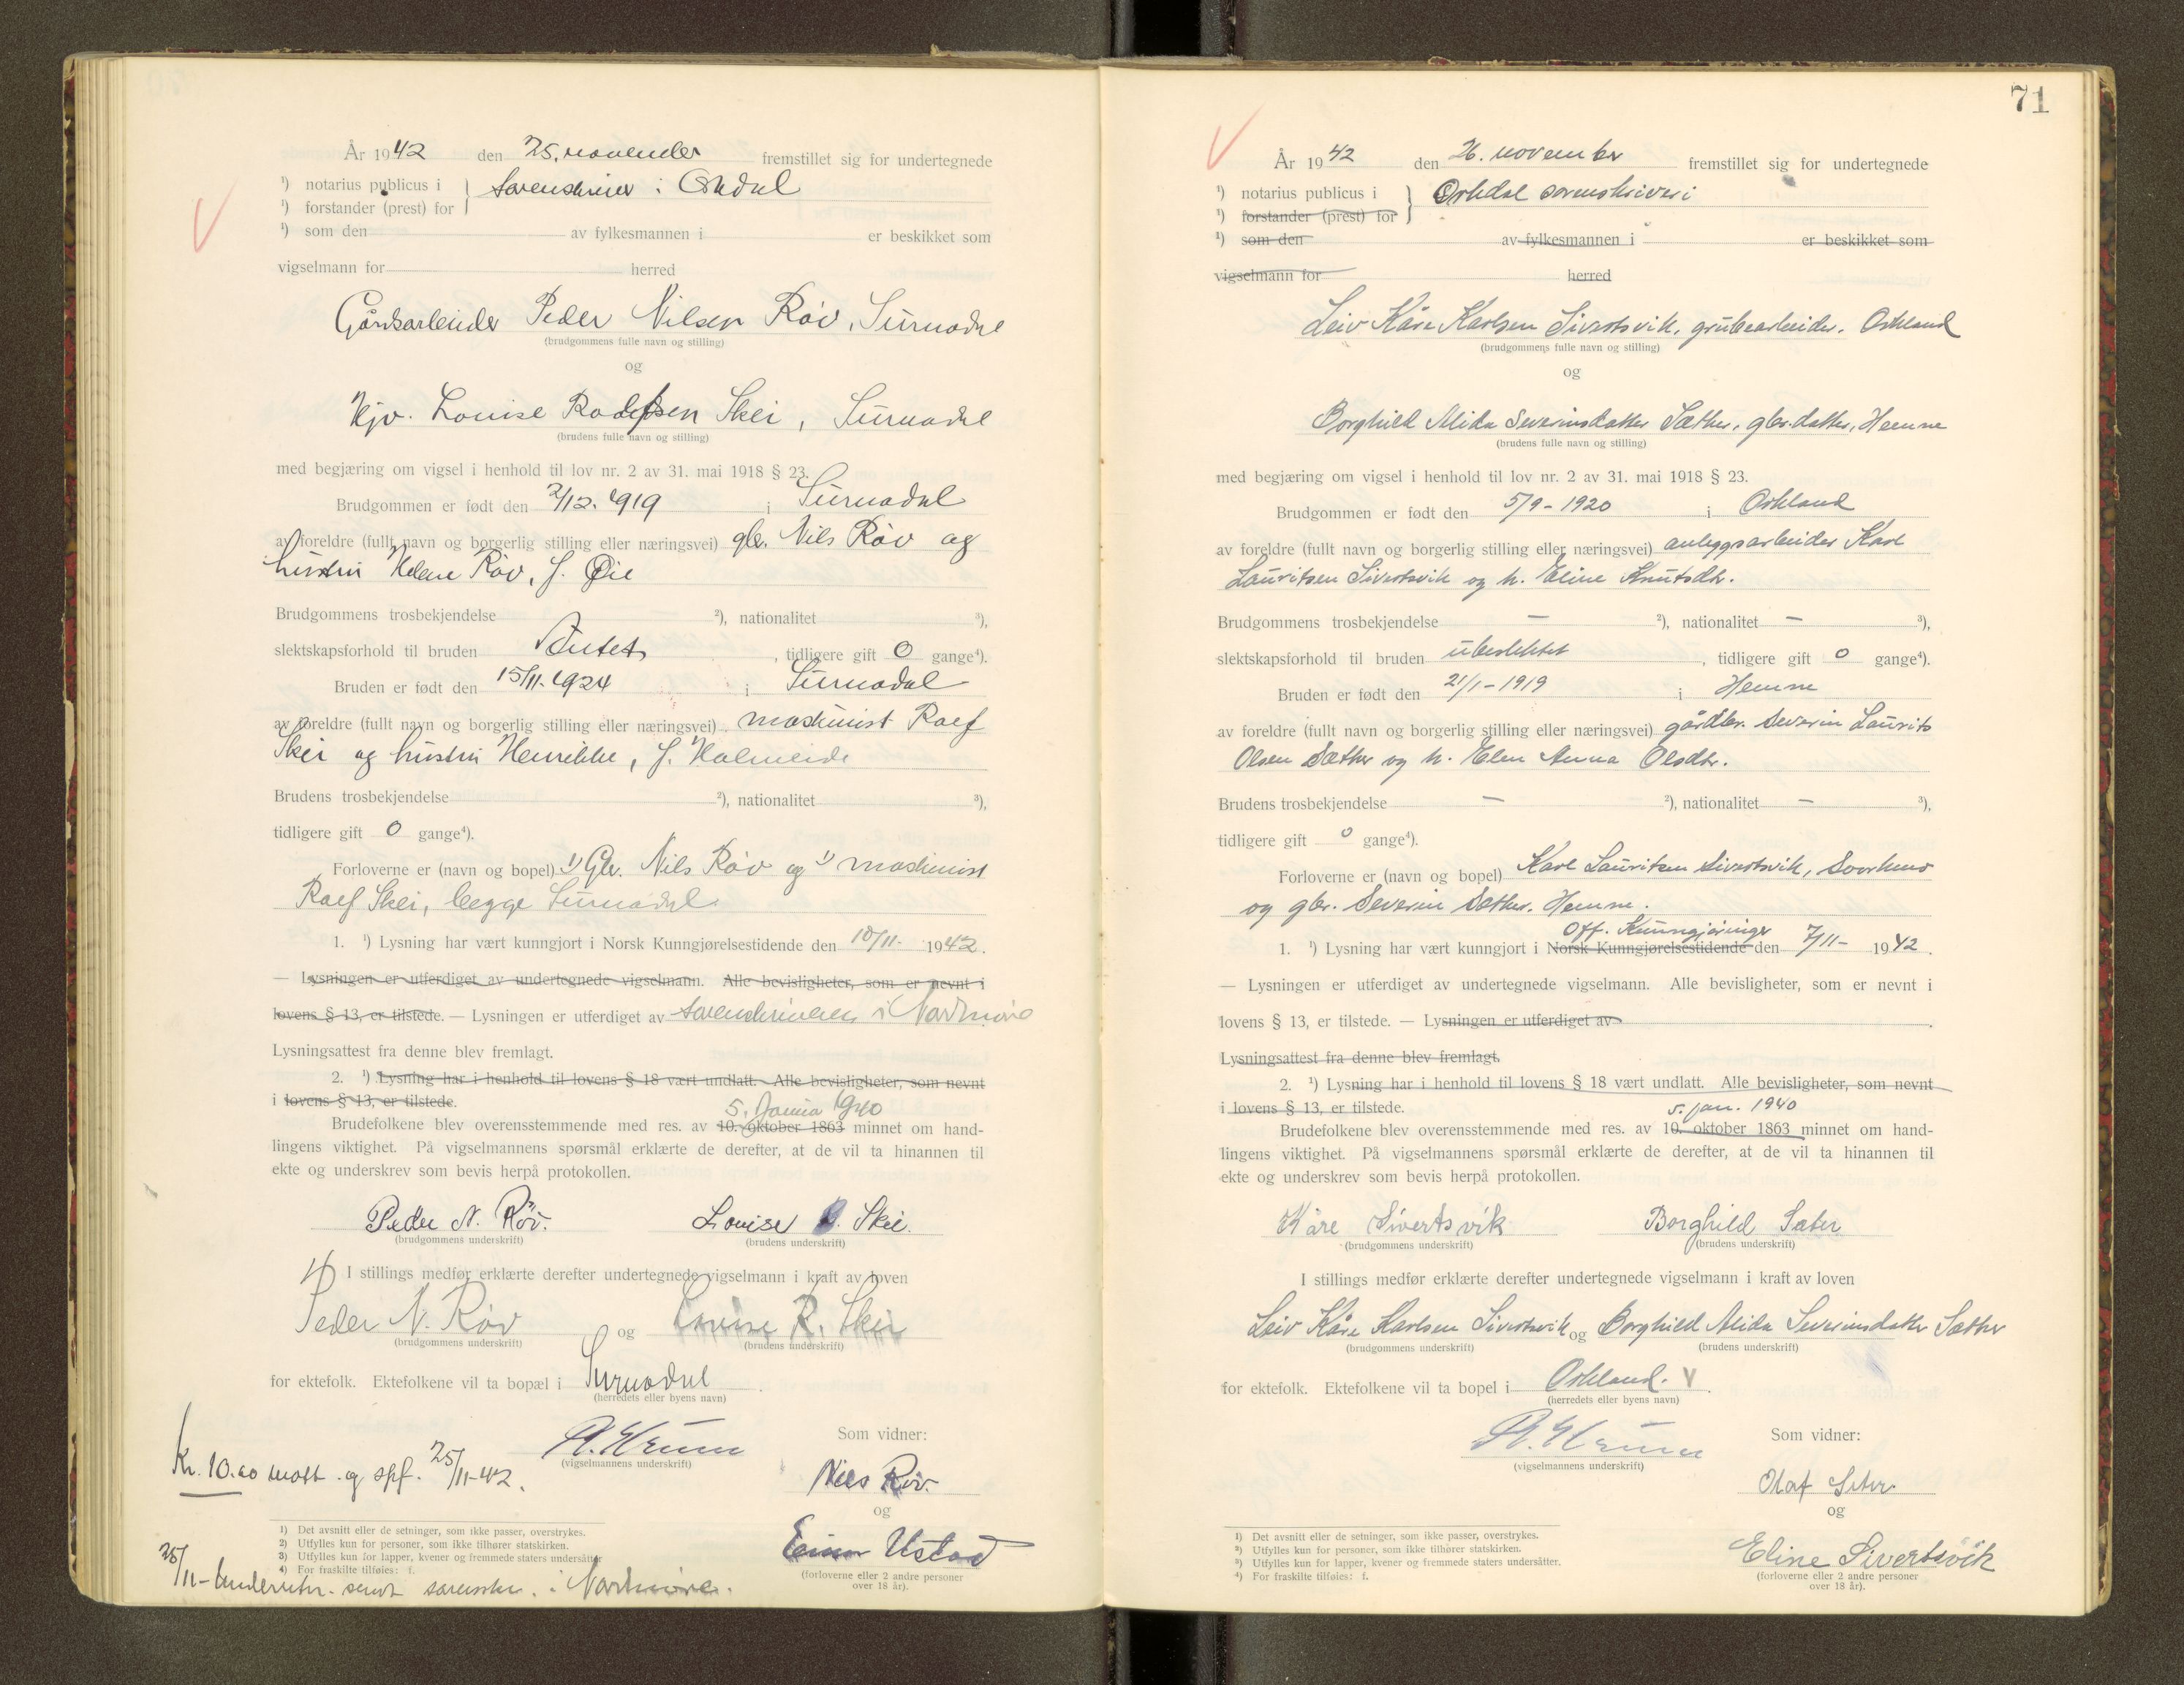 År 1942 den 25. november fremstillet sig for undertegnede
¹) notarius publicus i } sorenskriver i Orkdal
¹) forstander (prest) for
¹) som den av fylkesmannen i er beskikket som
vigselmann for herred
Gårdsarbeider Peder Nilsen Røv, Surnadal
(brudgommens fulle navn og stilling)
og
Hjv. Louise Skei, Surnadal
(brudens fulle navn og stilling)
med begjæring om vigsel i henhold til lov nr. 2 av 31. mai 1918 § 23.
Brudgommen er født den 2/12. 1919 i Surnadal
av foreldre (fullt navn og borgerlig stilling eller næringsvei) gbr. Nils Røv og
hustru Helene Røv, f. Øie
Brudgommens trosbekjendelse ²), nationalitet ³),
slektskapsforhold til bruden Intet, tidligere gift 0 gange⁴).
Bruden er født den 15/11. 1924 i Surnadal
av foreldre (fullt navn og borgerlig stilling eller næringsvei) maskinist Ralf
Skei og hustru Henrikke, f. Holmeide
Brudens trosbekjendelse ²), nationalitet ³),
tidligere gift 0 gange⁴).
Forloverne er (navn og bopel) 1) Gbr. Nils Røv og maskinist
Ralf Skei, begge Surnadal.
1. ¹) Lysning har vært kunngjort i Norsk Kunngjørelsestidende den 10/11- 1942.
— Lysningen er utferdiget av undertegnede vigselmann. Alle bevisligheter, som er nevnt i
lovens § 13, er tilstede. — Lysningen er utferdiget av sorenskriveren i Nordmøre
Lysningsattest fra denne blev fremlagt.
2. ¹) Lysning har i henhold til lovens § 18 vært undlatt. Alle bevisligheter, som nevnt
i lovens § 13, er tilstede.
5. 1940
Brudefolkene blev overensstemmende med res. av 10. oktober 1863 minnet om hand-
lingens viktighet. På vigselmannens spørsmål erklærte de derefter, at de vil ta hinannen til
ekte og underskrev som bevis herpå protokollen.
Peder N. Røv. Louise Skei.
(brudgommens underskrift) (brudens underskrift)
I stillings medfør erklærte derefter undertegnede vigselmann i kraft av loven
Peder N. Røv og Louise R. Skei
(brudgommens underskrift) (brudens underskrift)
for ektefolk. Ektefolkene vil ta bopæl i Surnadal.
(herredets eller byens navn)
Som vidner:
(vigselmannens underskrift)
Kr. 10.00 mott. og spf. 25/11-42.
Nils Røv.
og
Einar Ustad
(forloverne eller 2 andre personer
over 18 år).
¹) Det avsnitt eller de setninger, som ikke passer, overstrykes.
²) Utfylles kun for personer, som ikke tilhører statskirken.
³) Utfylles kun for lapper, kvener og fremmede staters undersåtter
⁴) For fraskilte tilføies: f.
25/11- Underretn. sendt sorenskr. i Nordmøre.
71
År 1942 den 26. november fremstillet sig for undertegnede
¹) notarius publicus i } Orkdal sorenskriveri
¹) forstander (prest) for
¹) som den av fylkesmannen i er beskikket som
vigselmann for herred
Leiv Kåre Karlsen Sivertsvik, grubearbeider. Orkland
(brudgommens fulle navn og stilling)
og
Borghild Alida Severinsdatter Sæther, gbr.datter, Hemne
(brudens fulle navn og stilling)
med begjæring om vigsel i henhold til lov nr. 2 av 31. mai 1918 § 23.
Brudgommen er født den 5/9-1920 i Orkland
av foreldre (fullt navn og borgerlig stilling eller næringsvei) anleggsarbeider Karl
Lauritsen Sivertsvik og h. Eline Knutsdtr.
Brudgommens trosbekjendelse — ²), nationalitet — ³),
slektskapsforhold til bruden ubeslektet, tidligere gift 0 gange⁴).
Bruden er født den 21/1-1919 i Hemne
av foreldre (fullt navn og borgerlig stilling eller næringsvei) gårdbr. Severin Laurits
Olsen Sæther og h. Elen Anna Olsdtr.
Brudens trosbekjendelse — ²), nationalitet — ³),
tidligere gift 0 gange⁴).
Forloverne er (navn og bopel) Karl Lauritsen Sivertsvik,
og gbr. Severin Sæther. Hemne.
Off. Kunngjøringer
1. ¹) Lysning har vært kunngjort i Norsk Kunngjørelsestidende den 7/11- 1942.
— Lysningen er utferdiget av undertegnede vigselmann. Alle bevisligheter, som er nevnt i
lovens § 13, er tilstede. — Lysningen er utferdiget av
Lysningsattest fra denne blev fremlagt.
2. ¹) Lysning har i henhold til lovens § 18 vært undlatt. Alle bevisligheter, som nevnt
i lovens § 13, er tilstede.
5. jan. 1940
Brudefolkene blev overensstemmende med res. av 10. oktober 1863 minnet om hand-
lingens viktighet. På vigselmannens spørsmål erklærte de derefter, at de vil ta hinannen til
ekte og underskrev som bevis herpå protokollen.
Kåre Sivertsvik Borghild Sæter
(brudgommens underskrift) (brudens underskrift)
I stillings medfør erklærte derefter undertegnede vigselmann i kraft av loven
Leiv Kåre Karlsen Sivertsvik og Borghild Alida Severinsdatter Sæther
(brudgommens underskrift) (brudens underskrift)
for ektefolk. Ektefolkene vil ta bopel i Orkland.
(herredets eller byens navn)
Som vidner:
(vigselmannens underskrift)
Olaf Seter
og
Eline Sivertsvik
(forloverne eller 2 andre personer
over 18 år).
¹) Det avsnitt eller de setninger, som ikke passer, overstrykes.
²) Utfylles kun for personer, som ikke tilhører statskirken.
³) Utfylles kun for lapper, kvener og fremmede staters undersåtter.
⁴) For fraskilte tilføies: f.